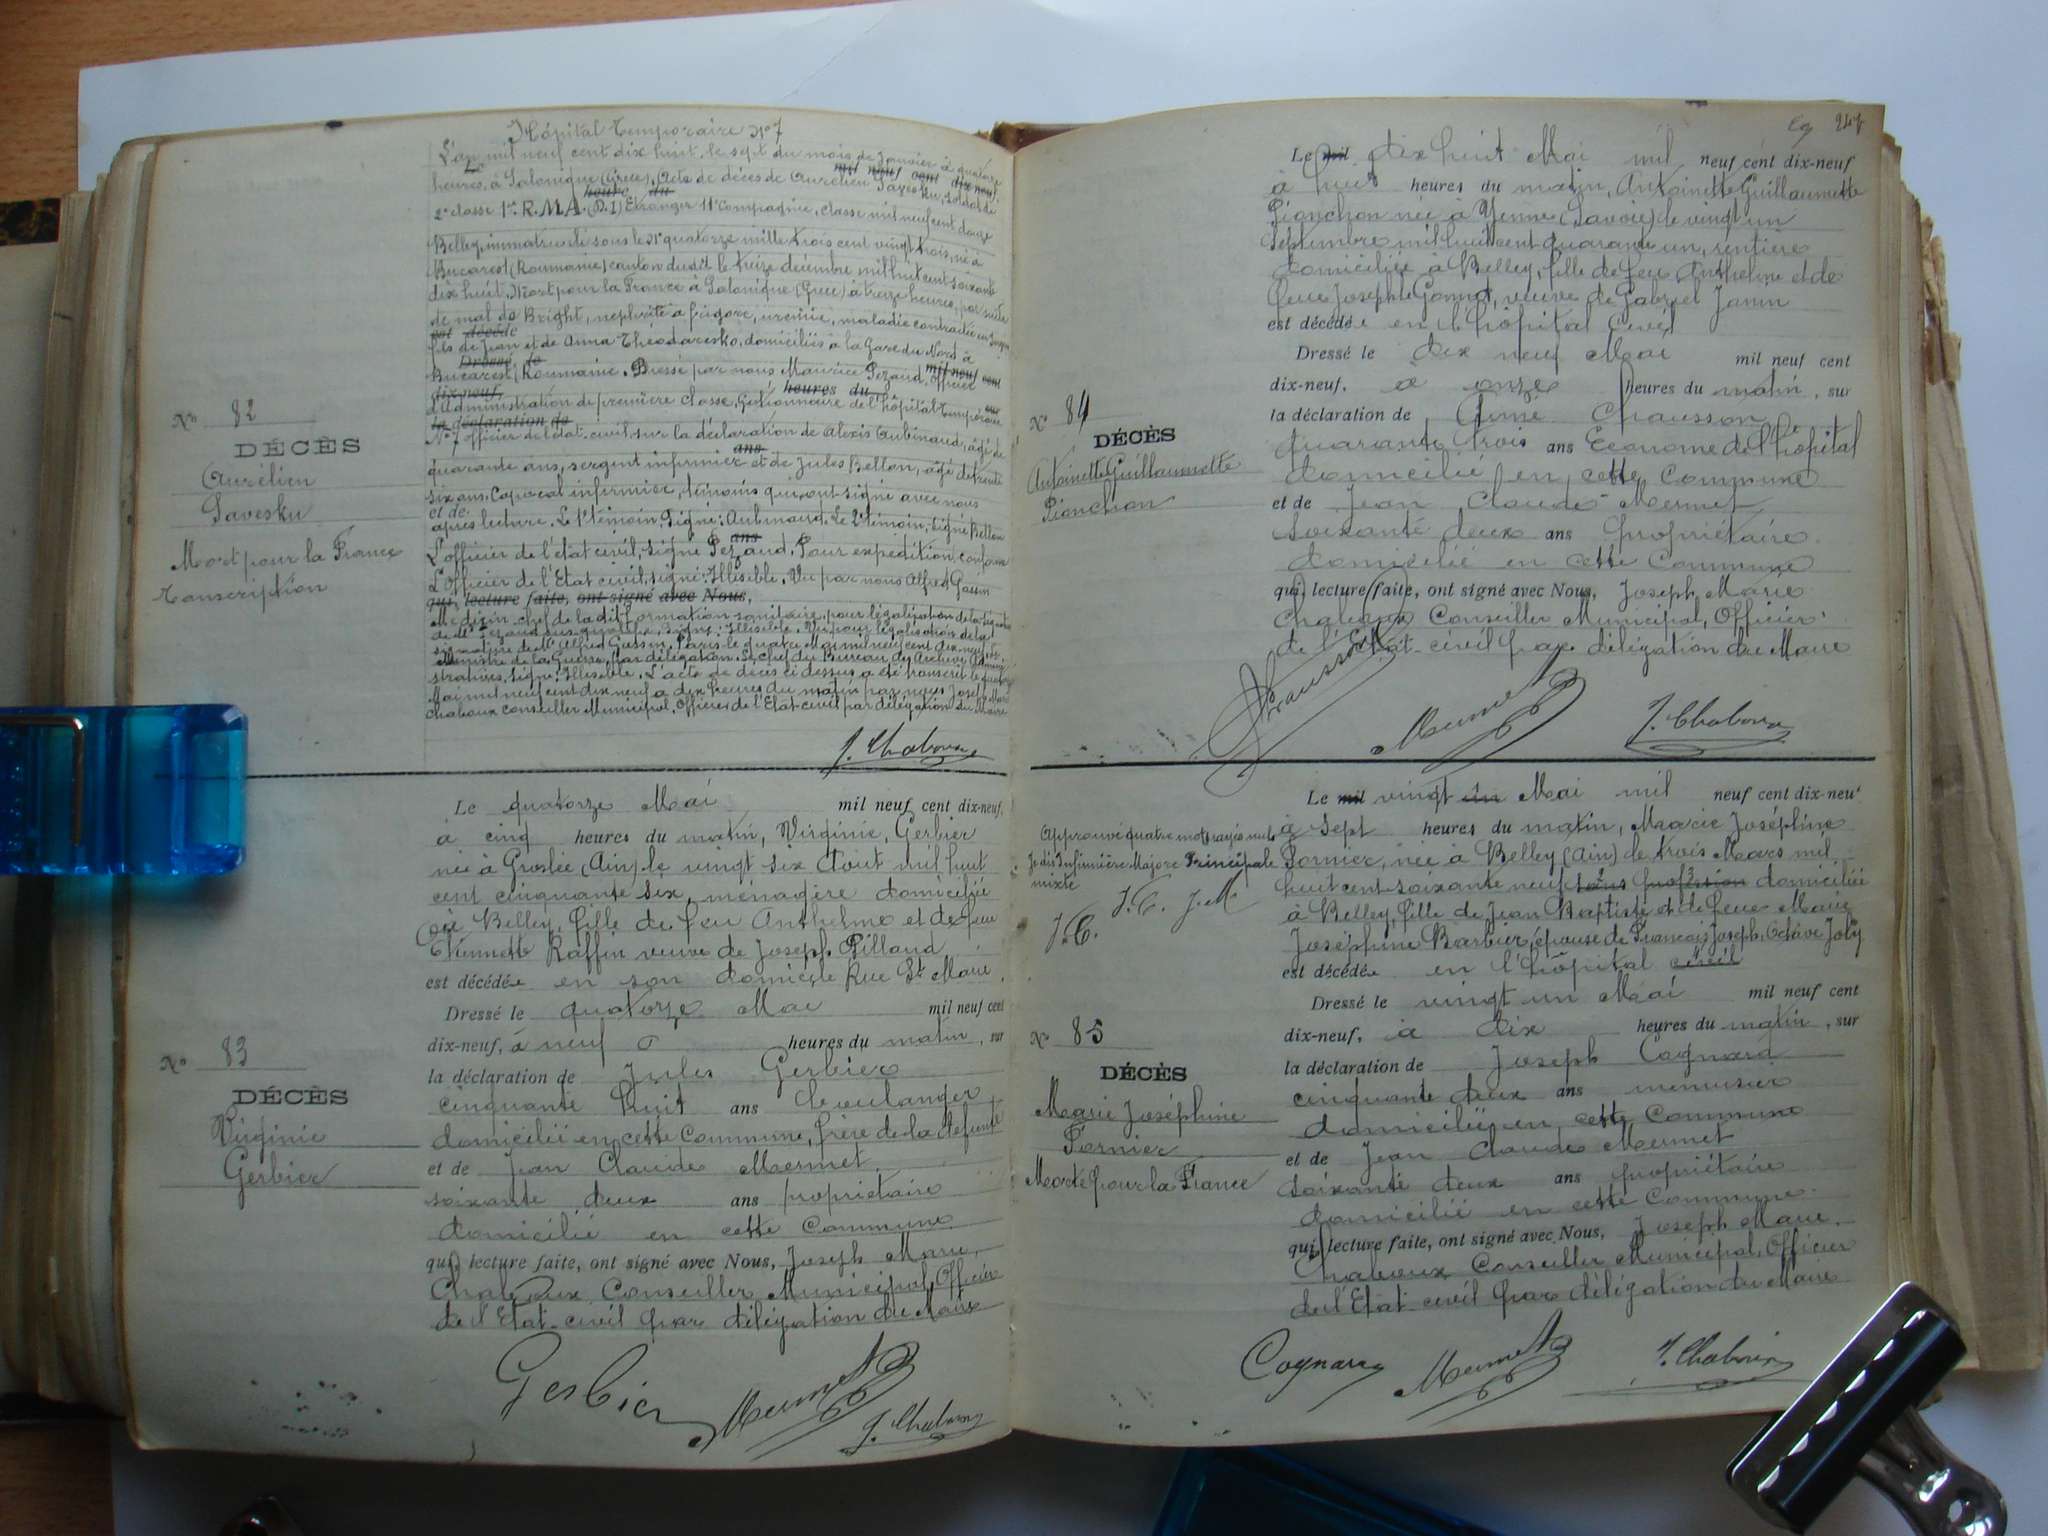 Hôpital Temporaire N°7
L'an mil neuf cent dix huit, le sept du mois de Janvier à quatorze
Le mil neuf cent dix-neuf,
heures, à Salonique (Grèce), Acte de décès de Aurélien Savesku, soldat de
heure du
2e classe 1er R.M.A. (D.I) Etranger 11e Compagnie, classe mil neuf cent douze
Belley, immatriculé sous le N° quatorze mille trois cent vingt trois, né à
Bucarest (Roumanie) canton dudit le treize décembre mil huit cent soixante
dix huit, Mort pour la France à Salonique (Grèce) à treize heures, par suite
de mal de Bright, nephrite a frigore, urémie, maladie contractée en
est décédé
fils de Jean et de Anna Théodaresko, domiciliés à la Gare du Nord à
Dressé le mil neuf cent
Bucarest, Roumanie. Dressé par nous Maurice Pezaud, officier
dix-neuf, heures du sur
d'Administration de première classe, Gestionnaire de l'hôpital temporaire
la déclaration de
N°7 officier de l'état-civil, sur la déclaration de Alexis Aubinaud, âgé de
ans
quarante ans, sergent infirmier et de Jules Bellon, âgé de trente
six ans, Caporal infirmier, témoins qui ont signé avec nous
et de
après lecture. Le 1er témoin, Signé: Aubinaud. Le 2e témoin, signé Bellon
ans
L'officier de l'état civil, signé Pezaud. Pour expédition conforme
L'Officier de l'Etat civil, signé: Illisible. Vu par nous Alfred
qui, lecture faite, ont signé avec Nous,
Médecin-chef de la dite formation sanitaire, pour légalisation de la signature
de Mr Pezaud sus-qualifié, signé: Illisible. Vu pour légalisation de la
signature de Mr Alfred Paris le quatre Mai mil neuf cent dix-neuf,
Ministre de la Guerre, par délégation. Le chef du Bureau des Archives Admini
stratives, signé: Illisible. L'acte de décès ci dessus a été transcrit le quatorze
Mai mil neuf cent dix neuf à dix heures du matin par nous Joseph Marie
Chaboux conseiller Municipal, Officier de l'Etat-civil par délégation du Maire
J. Chaboux
N° 82
DÉCÈS
Aurélien
Savesku
Mort pour la France
Transcription
Le quatorze Mai mil neuf cent dix-neuf,
à cinq heures du matin, Virginie, Gerbier
née à Groslée (Ain) le vingt six Août mil huit
cent cinquante six, ménagère domiciliée
à Belley, fille de feu Anthelme et de feue
Etiennette Raffin veuve de Joseph Pilland
est décédée en son domicile Rue Ste Marie
Dressé le quatorze Mai mil neuf cent
dix-neuf, à neuf heures du matin, sur
la déclaration de Jules Gerbier
cinquante huit ans boulanger
domicilié en cette Commune, frère de la défunte
et de Jean Claude Mermet
soixante deux ans propriétaire
domicilié en cette Commune
qui, lecture faite, ont signé avec Nous, Joseph Marie
Chaboux Conseiller Municipal, Officier
de l'Etat-civil par délégation du Maire
Gerbier Mermet J. Chaboux
N° 83
DÉCÈS
Virginie
Gerbier
247
Le mil dix huit Mai mil neuf cent dix-neuf
à huit heures du matin, Antoinette Guillaumette
Pionchon née à Yenne (Savoie) le vingt un
Septembre mil huit cent quarante un, rentière
domiciliée à Belley, fille de feu Anthelme et de
feue Josephte Gonnet, veuve de Gabriel Janin
est décédée en l'hôpital Civil
Dressé le dix neuf Mai mil neuf cent
dix-neuf, à onze heures du matin, sur
la déclaration de Aimé Chausson
quarante trois ans Econome de l'hôpital
domicilié en cette Commune
et de Jean Claude Mermet
soixante deux ans propriétaire
domicilié en cette Commune
qui, lecture faite, ont signé avec Nous, Joseph Marie
Chaboux Conseiller Municipal, Officier
de l'Etat-civil par délégation du Maire
Chausson Mermet J. Chaboux
N° 84
DÉCÈS
Antoinette Guillaumette
Pionchon
Le mil vingt un Mai mil neuf cent dix-neuf
à sept heures du matin, Marie Joséphine
Fornier, née à Belley (Ain) le trois Mars mil
huit cent soixante neuf sans profession domiciliée
à Belley, fille de Jean Baptiste et de feue Marie
Joséphine Barbier, épouse de François Joseph, Octave Joly
est décédée en l'hôpital civil
Dressé le vingt un Mai mil neuf cent
dix-neuf, à dix heures du matin, sur
la déclaration de Joseph Cognard
cinquante deux ans menuisier
domicilié en cette Commune
et de Jean Claude Mermet
soixante deux ans propriétaire
domicilié en cette Commune
qui, lecture faite, ont signé avec Nous, Joseph Marie
Chaboux Conseiller Municipal, Officier
de l'Etat-civil par délégation du Maire
Cognard Mermet J. Chaboux
Approuvé quatre mots rayés nuls
Je dis Infirmière-Majore Principale
mixte
J.C. J.M
J.C.
N° 85
DÉCÈS
Marie Joséphine
Fornier
Morte pour la France